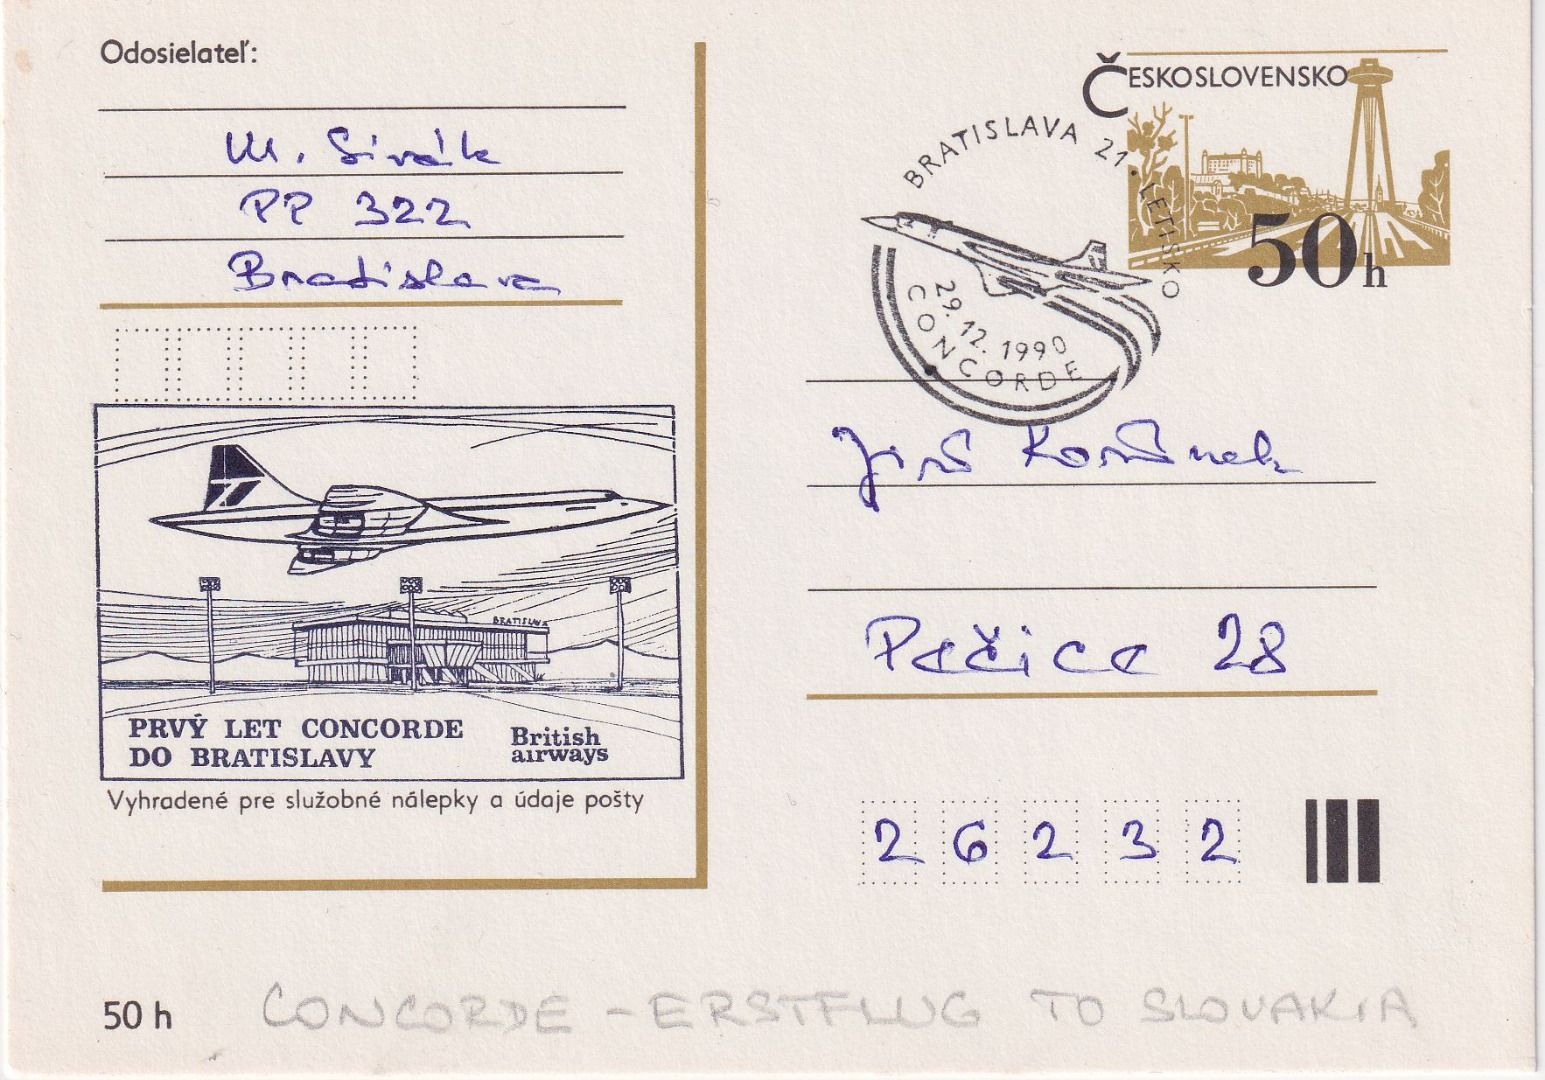 Odosielateľ:
M. Sivák
PP 322
Bratislava
BRATISLAVA
PRVÝ LET CONCORDE
DO BRATISLAVY
British
airways
Vyhradené pre služobné nálepky a údaje pošty
50 h
ČESKOSLOVENSKO
50 h
BRATISLAVA 21. LETISKO
29.12.1990
CONCORDE
Jiří Kořínek
Pečice 28
26232
CONCORDE - ERSTFLUG TO SLOVAKIA